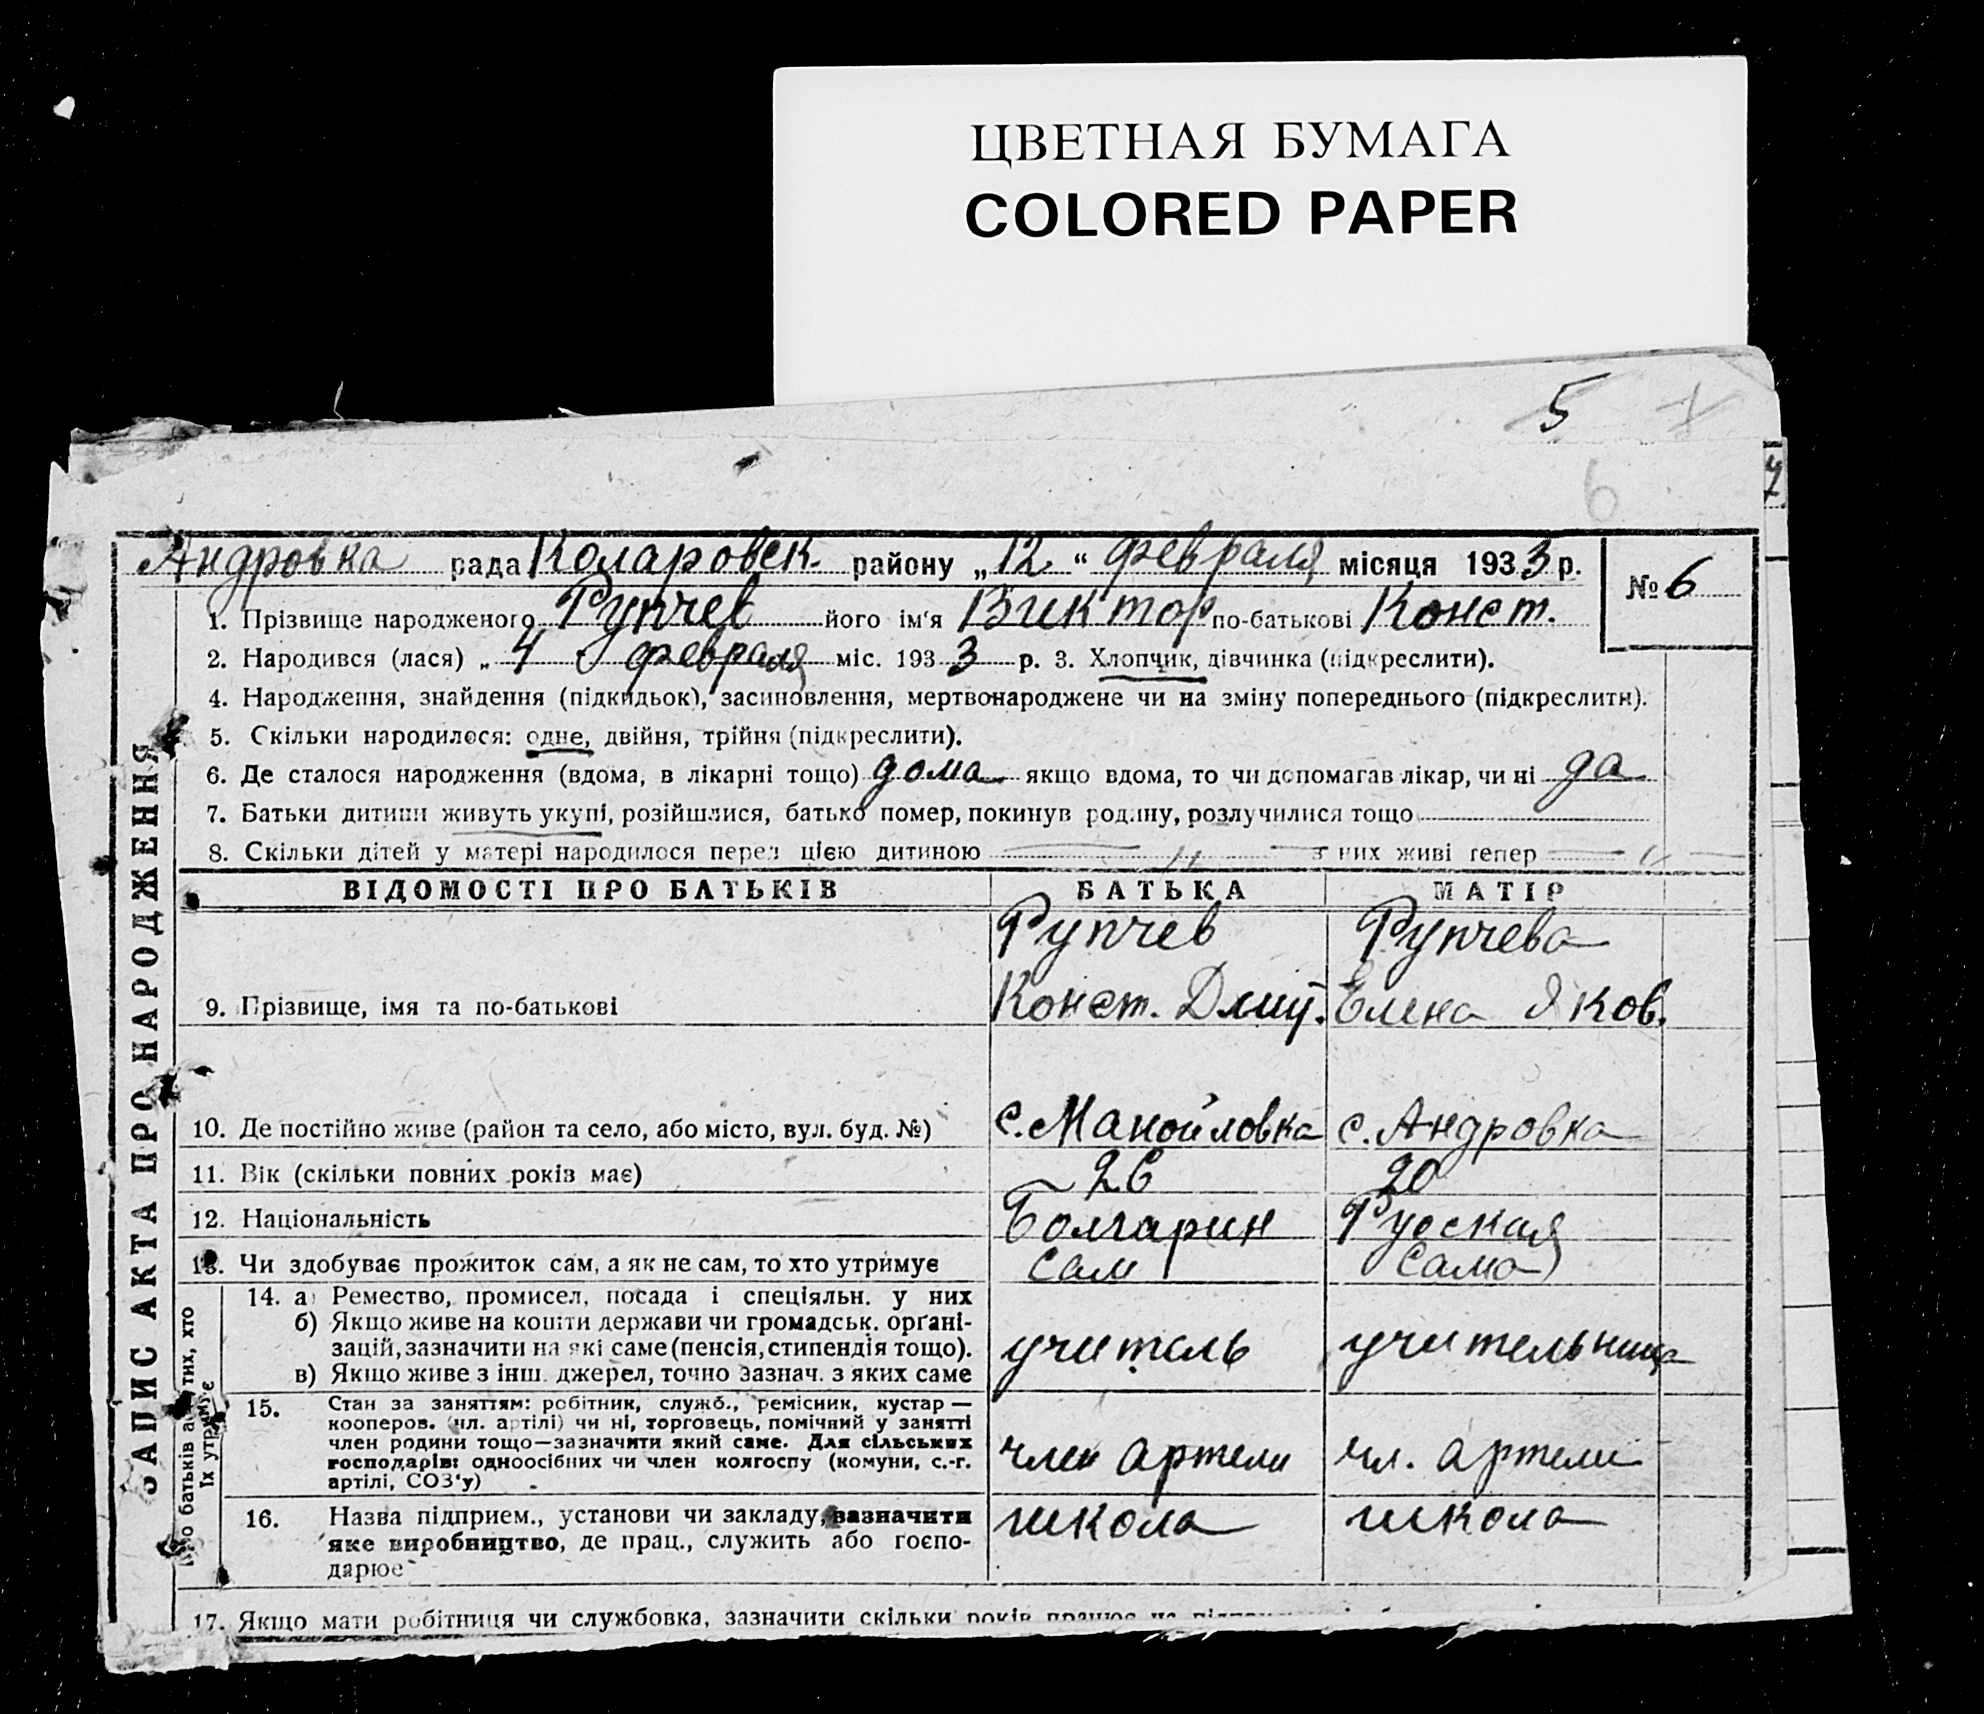 ЦВЕТНАЯ БУМАГА
COLORED PAPER
5
6
Андровка рада Коларовск. району „12“ февраля місяця 1933 р.
№ 6
1. Прізвище народженого Рупчев його ім'я Виктор по-батькові Конст.
2. Народився (лася) „4 февраля міс. 1933 р. 3. Хлопчик, дівчинка (підкреслити).
4. Народження, знайдення (підкидьок), засиновлення, мертвонароджене чи на зміну попереднього (підкреслити).
5. Скільки народилося: одне, двійня, трійня (підкреслити).
6. Де сталося народження (вдома, в лікарні тощо) дома якщо вдома, то чи допомагав лікар, чи ні да
7. Батьки дитини живуть укупі, розійшлися, батько помер, покинув родину, розлучилися тощо
8. Скільки дітей у матері народилося перед цією дитиною — „ — з них живі тепер — „ —
ЗАПИС АКТА ПРО НАРОДЖЕННЯ
ВІДОМОСТІ ПРО БАТЬКІВ БАТЬКА МАТІР
Рупчев Рупчева
9. Прізвище, імя та по-батькові Конст. Дмит. Елена Яков.
10. Де постійно живе (район та село, або місто, вул. буд. №) с. Манойловка с. Андровка
11. Вік (скільки повних років має) 26 20
12. Національність Болгарин Руская
13. Чи здобуває прожиток сам, а як не сам, то хто утримує сам сама
Про батьків або тих, хто
їх утримує
14. а) Ремество, промисел, посада і спеціяльн. у них
б) Якщо живе на кошти держави чи громадськ. орґані-
зацій, зазначити на які саме (пенсія, стипендія тощо). учитель учительница
в) Якщо живе з інш. джерел, точно зазнач. з яких саме
15. Стан за заняттям: робітник, служб., ремісник, кустар —
кооперов. (чл. артілі) чи ні, торговець, помічний у занятті
член родини тощо—зазначити який саме. Для сільських
господарів: одноосібних чи член колгоспу (комуни, с.-г. член артели чл. артели
артілі, СОЗ'у)
16. Назва підприєм., установи чи закладу, зазначити школа школа
яке виробництво, де прац., служить або госпо-
дарює
17. Якщо мати робітниця чи службовка, зазначити скільки років працює на